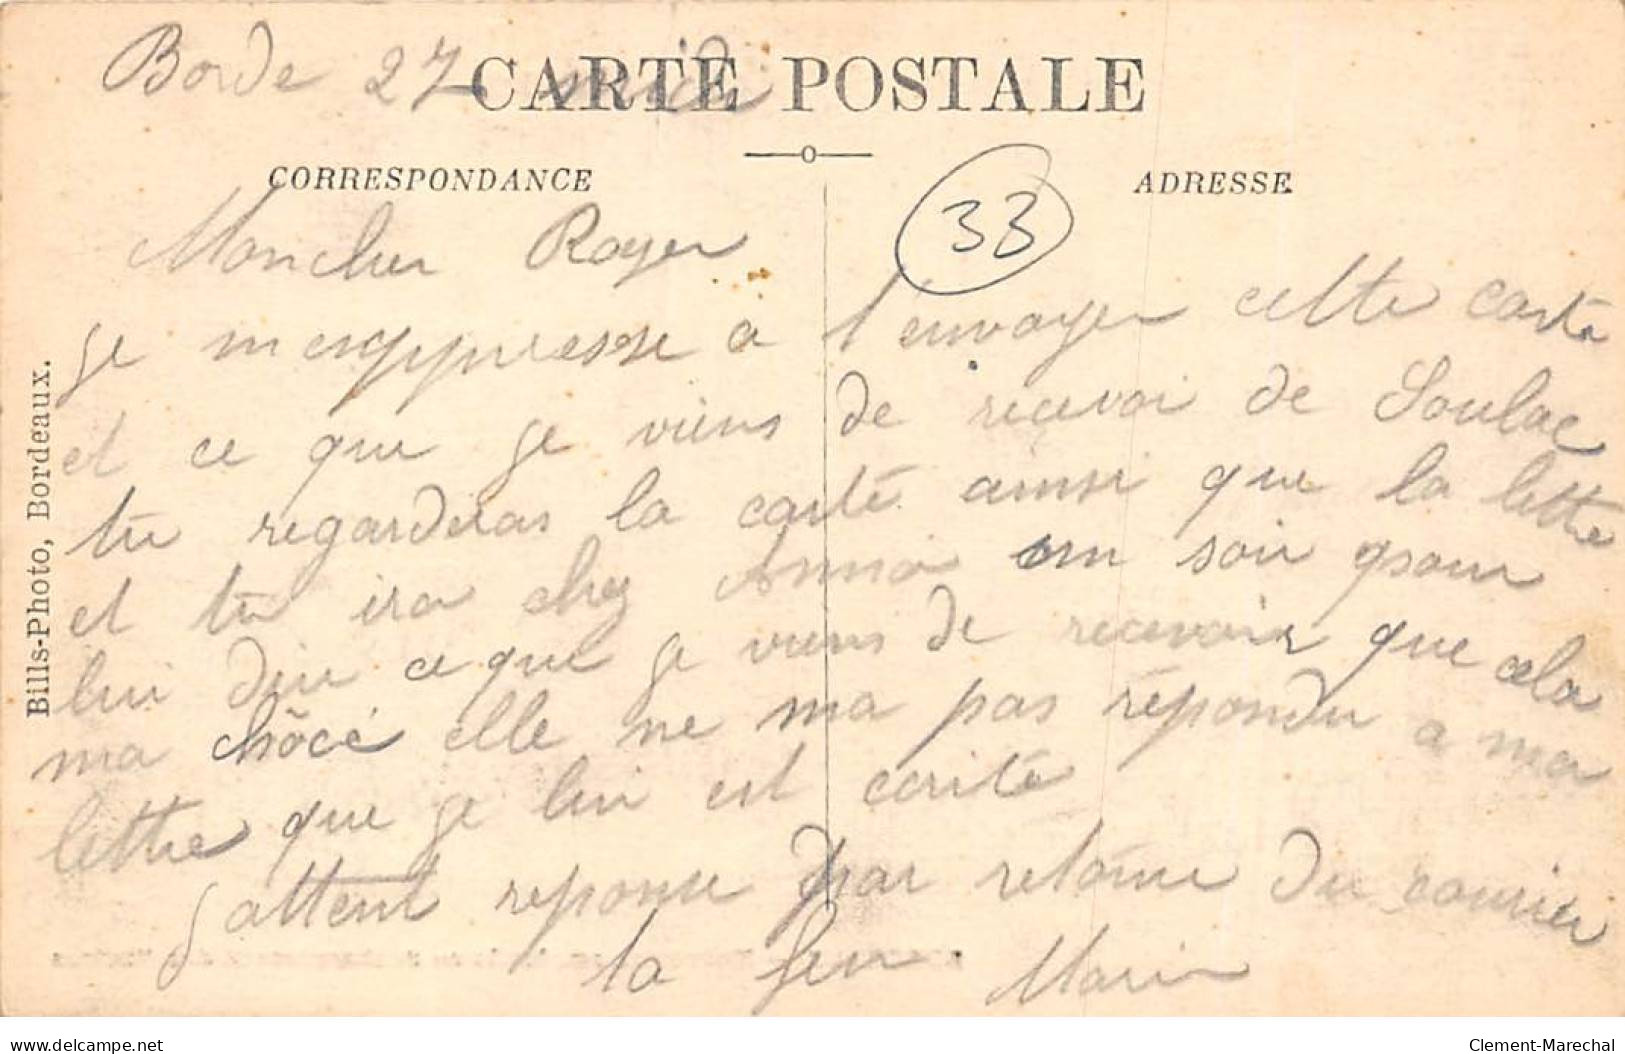 Borde 27 midi
CARTE POSTALE
CORRESPONDANCE
ADRESSE
33
Mon cher Roger
je m'emppresse a t'envoyer cette carte
et ce que je viens de recevoi de Soulac
tu regarderas la carte ainsi que la lettre
et tu ira chez Anna un soir pour
lui dire ce que je viens de recevoir que cela
ma chôcé elle ne ma pas répondu a ma
lettre que je lui est écrite
J'attent reponse par retour du courrier
ta
Bills-Photo, Bordeaux.
delcampe.net
Clement-Marechal